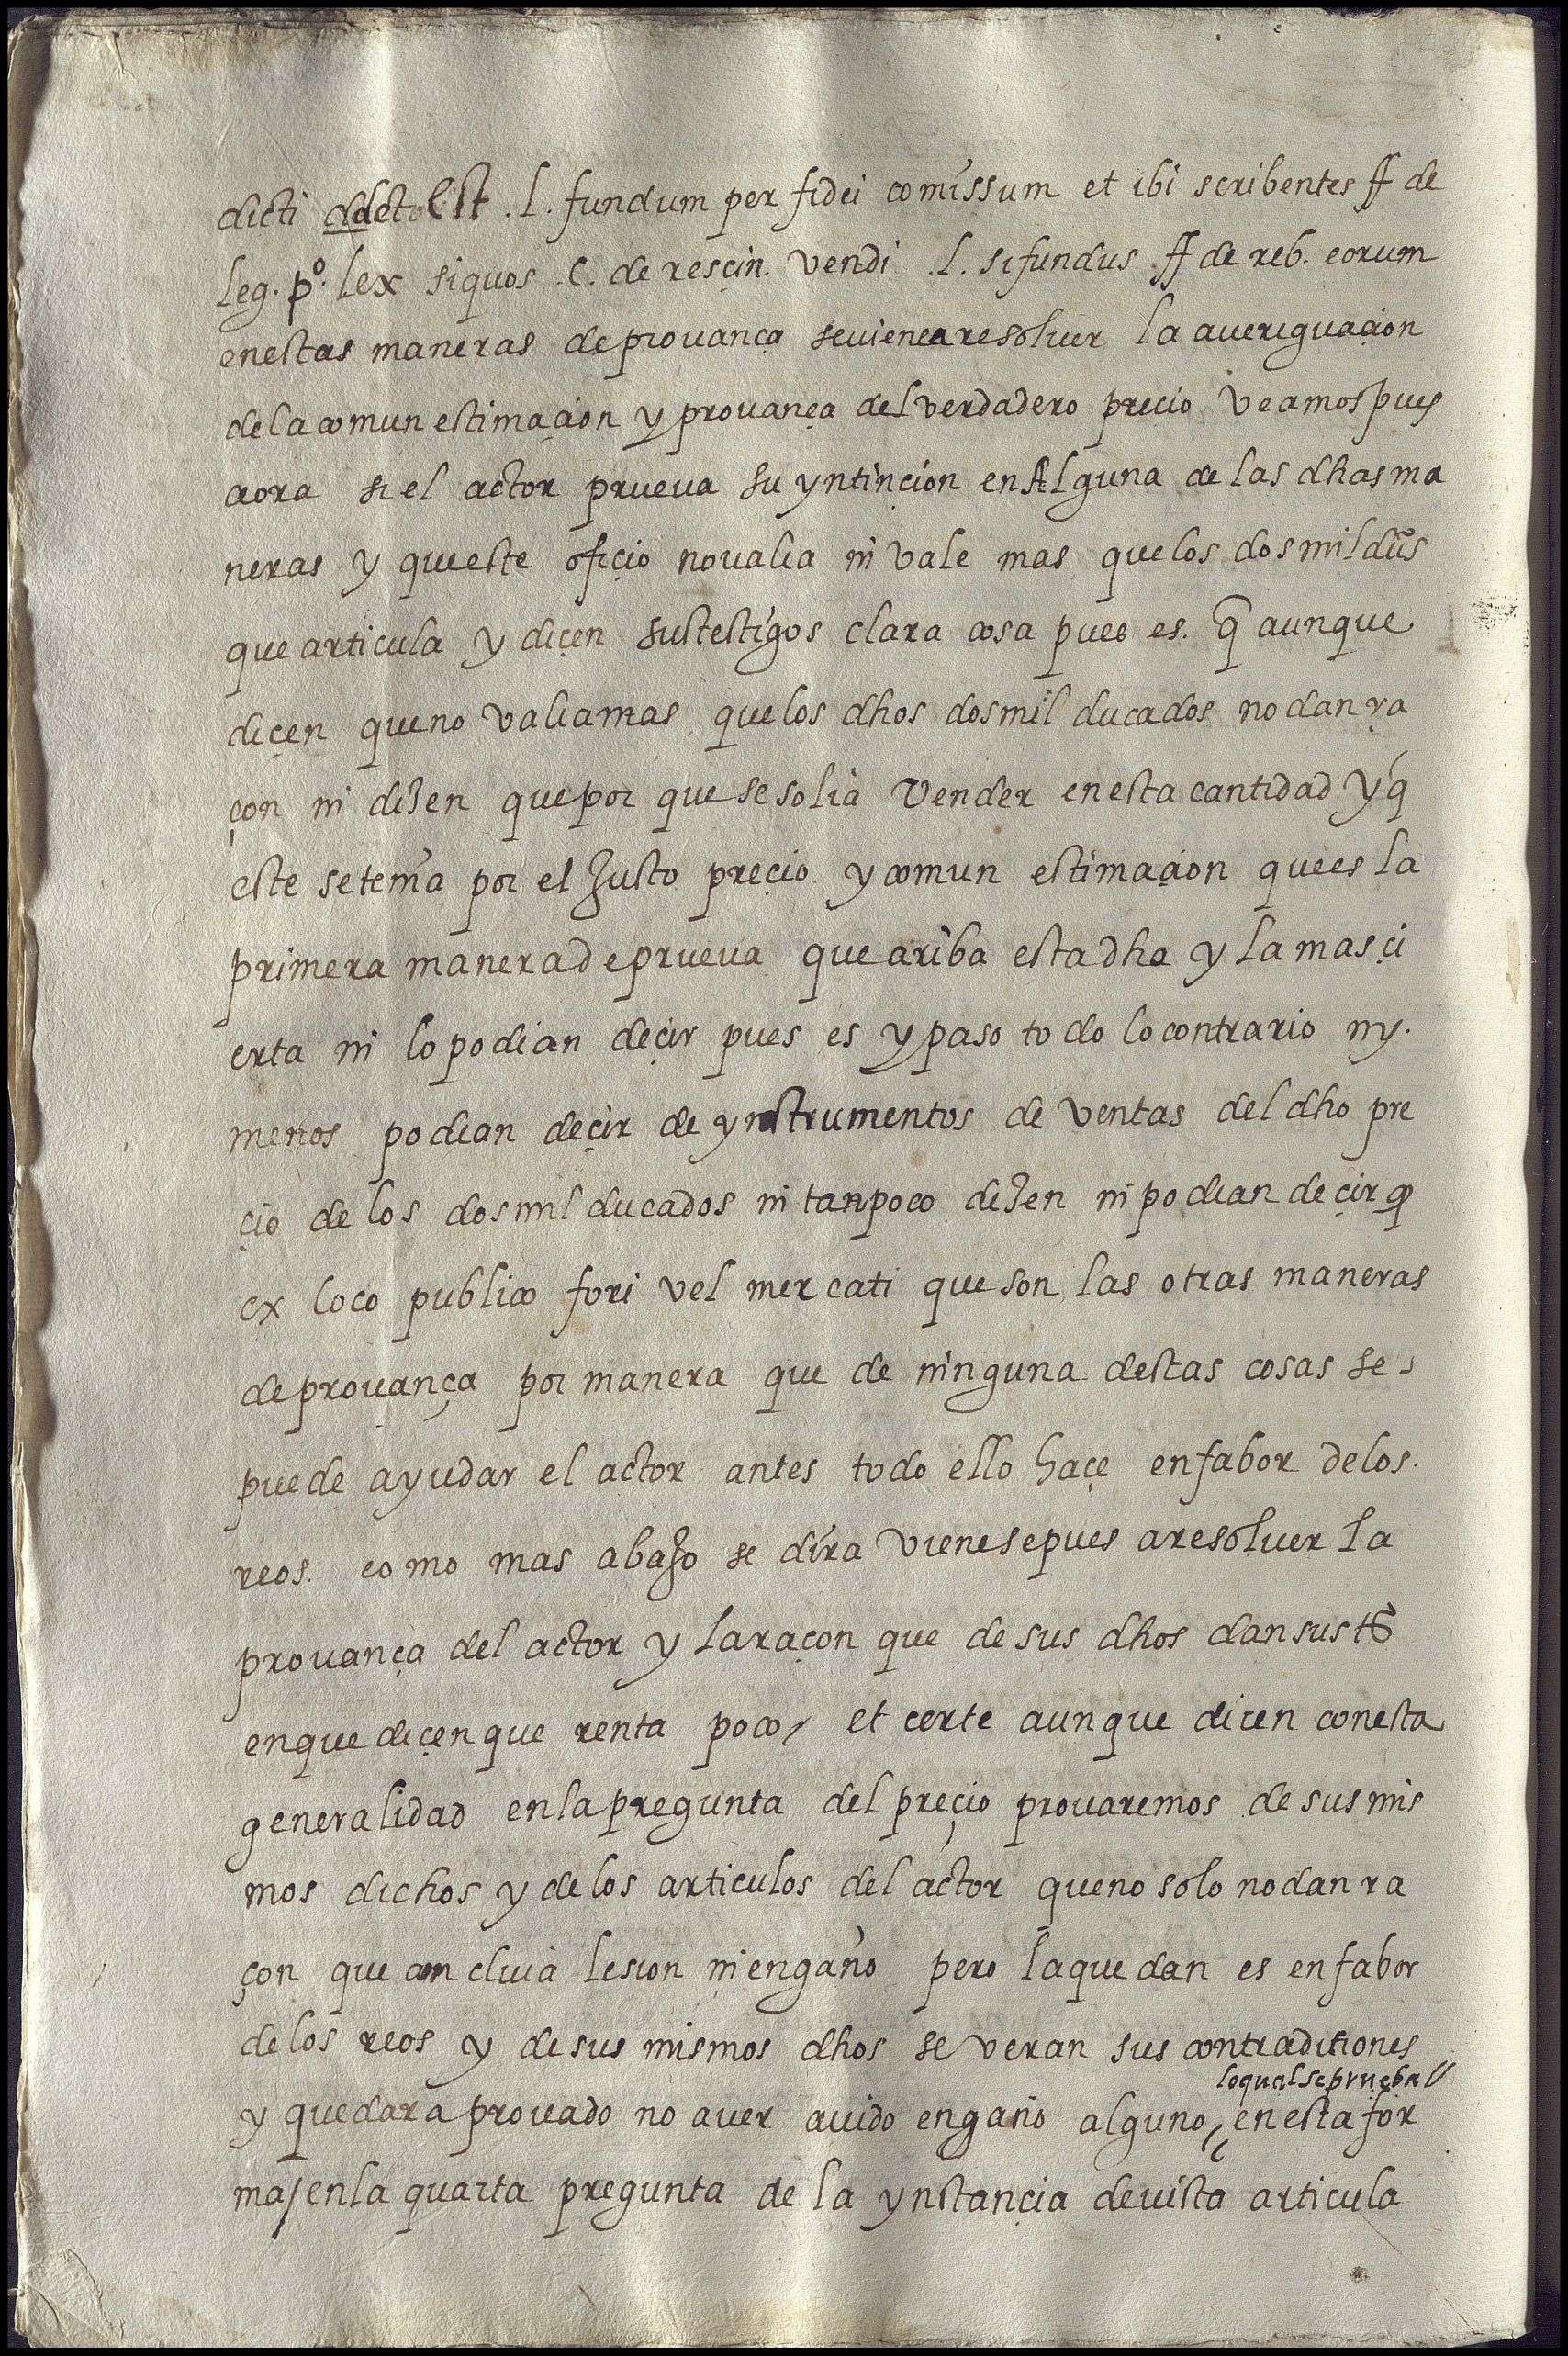 dicti .l. fundum per fidei comissum et ibi scribentes ff de
leg. pº. lex siquos .C. de resçin. vendi .l. si fundus ff de reb. eorum
enestas maneras de provança se viene a resolver la averiguaçion
dela comun estimaçion y provança del verdadero precio veamos pues
aora si el actor prueva su yntinçion en Alguna de las dhas ma
neras y que este ofiçio no valia ni vale mas que los dos mil dus
que articula y diçen sus testigos clara cosa pues es. q aunque
diçen que no valia mas que los dhos dos mil ducados no dan ra
çon ni dizen que por que se solia vender en esta cantidad y q
este se temia por el Justo preçio y comun estimaçion que es la
primera manera de prueva que ariba esta dha y la mas çi
erta ni lo podian deçir pues es y paso todo lo contrario ny.
menos podian deçir de ynstrumentos de ventas del dho pre
çio de los dos mil ducados ni tanpoco dizen ni podian deçir q
ex loco publico fori vel mercati que son las otras maneras
de provança por manera que de ninguna destas cosas se
puede ayudar el actor antes todo ello haçe en fabor de los.
reos. como mas abaJo se dira vienese pues a resolver la
provança del actor y la raçon que de sus dhos dan sus tos
en que diçen que renta poco, et certe aunque dicen con esta
generalidad en la pregunta del preçio provaremos de sus mis
mos dichos y de los articulos del actor que no solo no dan ra
çon que concluia lesion ni engaño pero la que dan es en fabor
de los reos y de sus mismos dhos se veran sus contraditiones
lo qual se prueba //
y quedara provado no aver avido engaño alguno, en esta for
ma / en la quarta pregunta de la ynstançia de vista articula